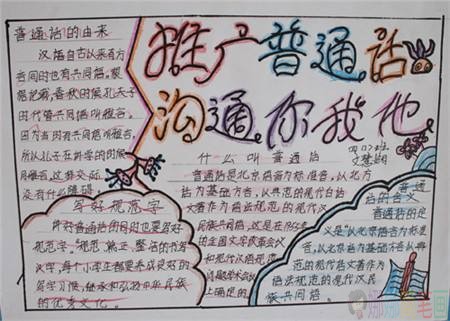 普通话的由来
汉语自古以来有方
言同时也有共同语。根
据记载,春秋时候,孔夫子
时代管共同语叫雅言。
因为当时有共同语叫雅言。
所以孔子在讲学的时候
用雅言,这样交际
没有什么障碍。
推广普通话
沟通你我他
四(1)班
什么叫普通话
普通话是北京语音为标准音,以北方
话为基础方言,以典范的现代白话
文著作为语法规范的现代汉
民族共同语,这是在1955年
的全国文字改革会议
和现代汉语规范
问题学术会议
上确定的。
写好规范字
讲好普通话的同时也要写好
规范字。"规范、端正、整洁的书写
汉字,每个小学生都要养成良好的
写字习惯,继承和弘扬中华民族
的优秀文化。
普通
话的含义
普通话的定
义是"以北京语音为标准
音,以北方话为基础方言,以典
范的现代白话文著作为
语法规范的现代汉民
族共同语。